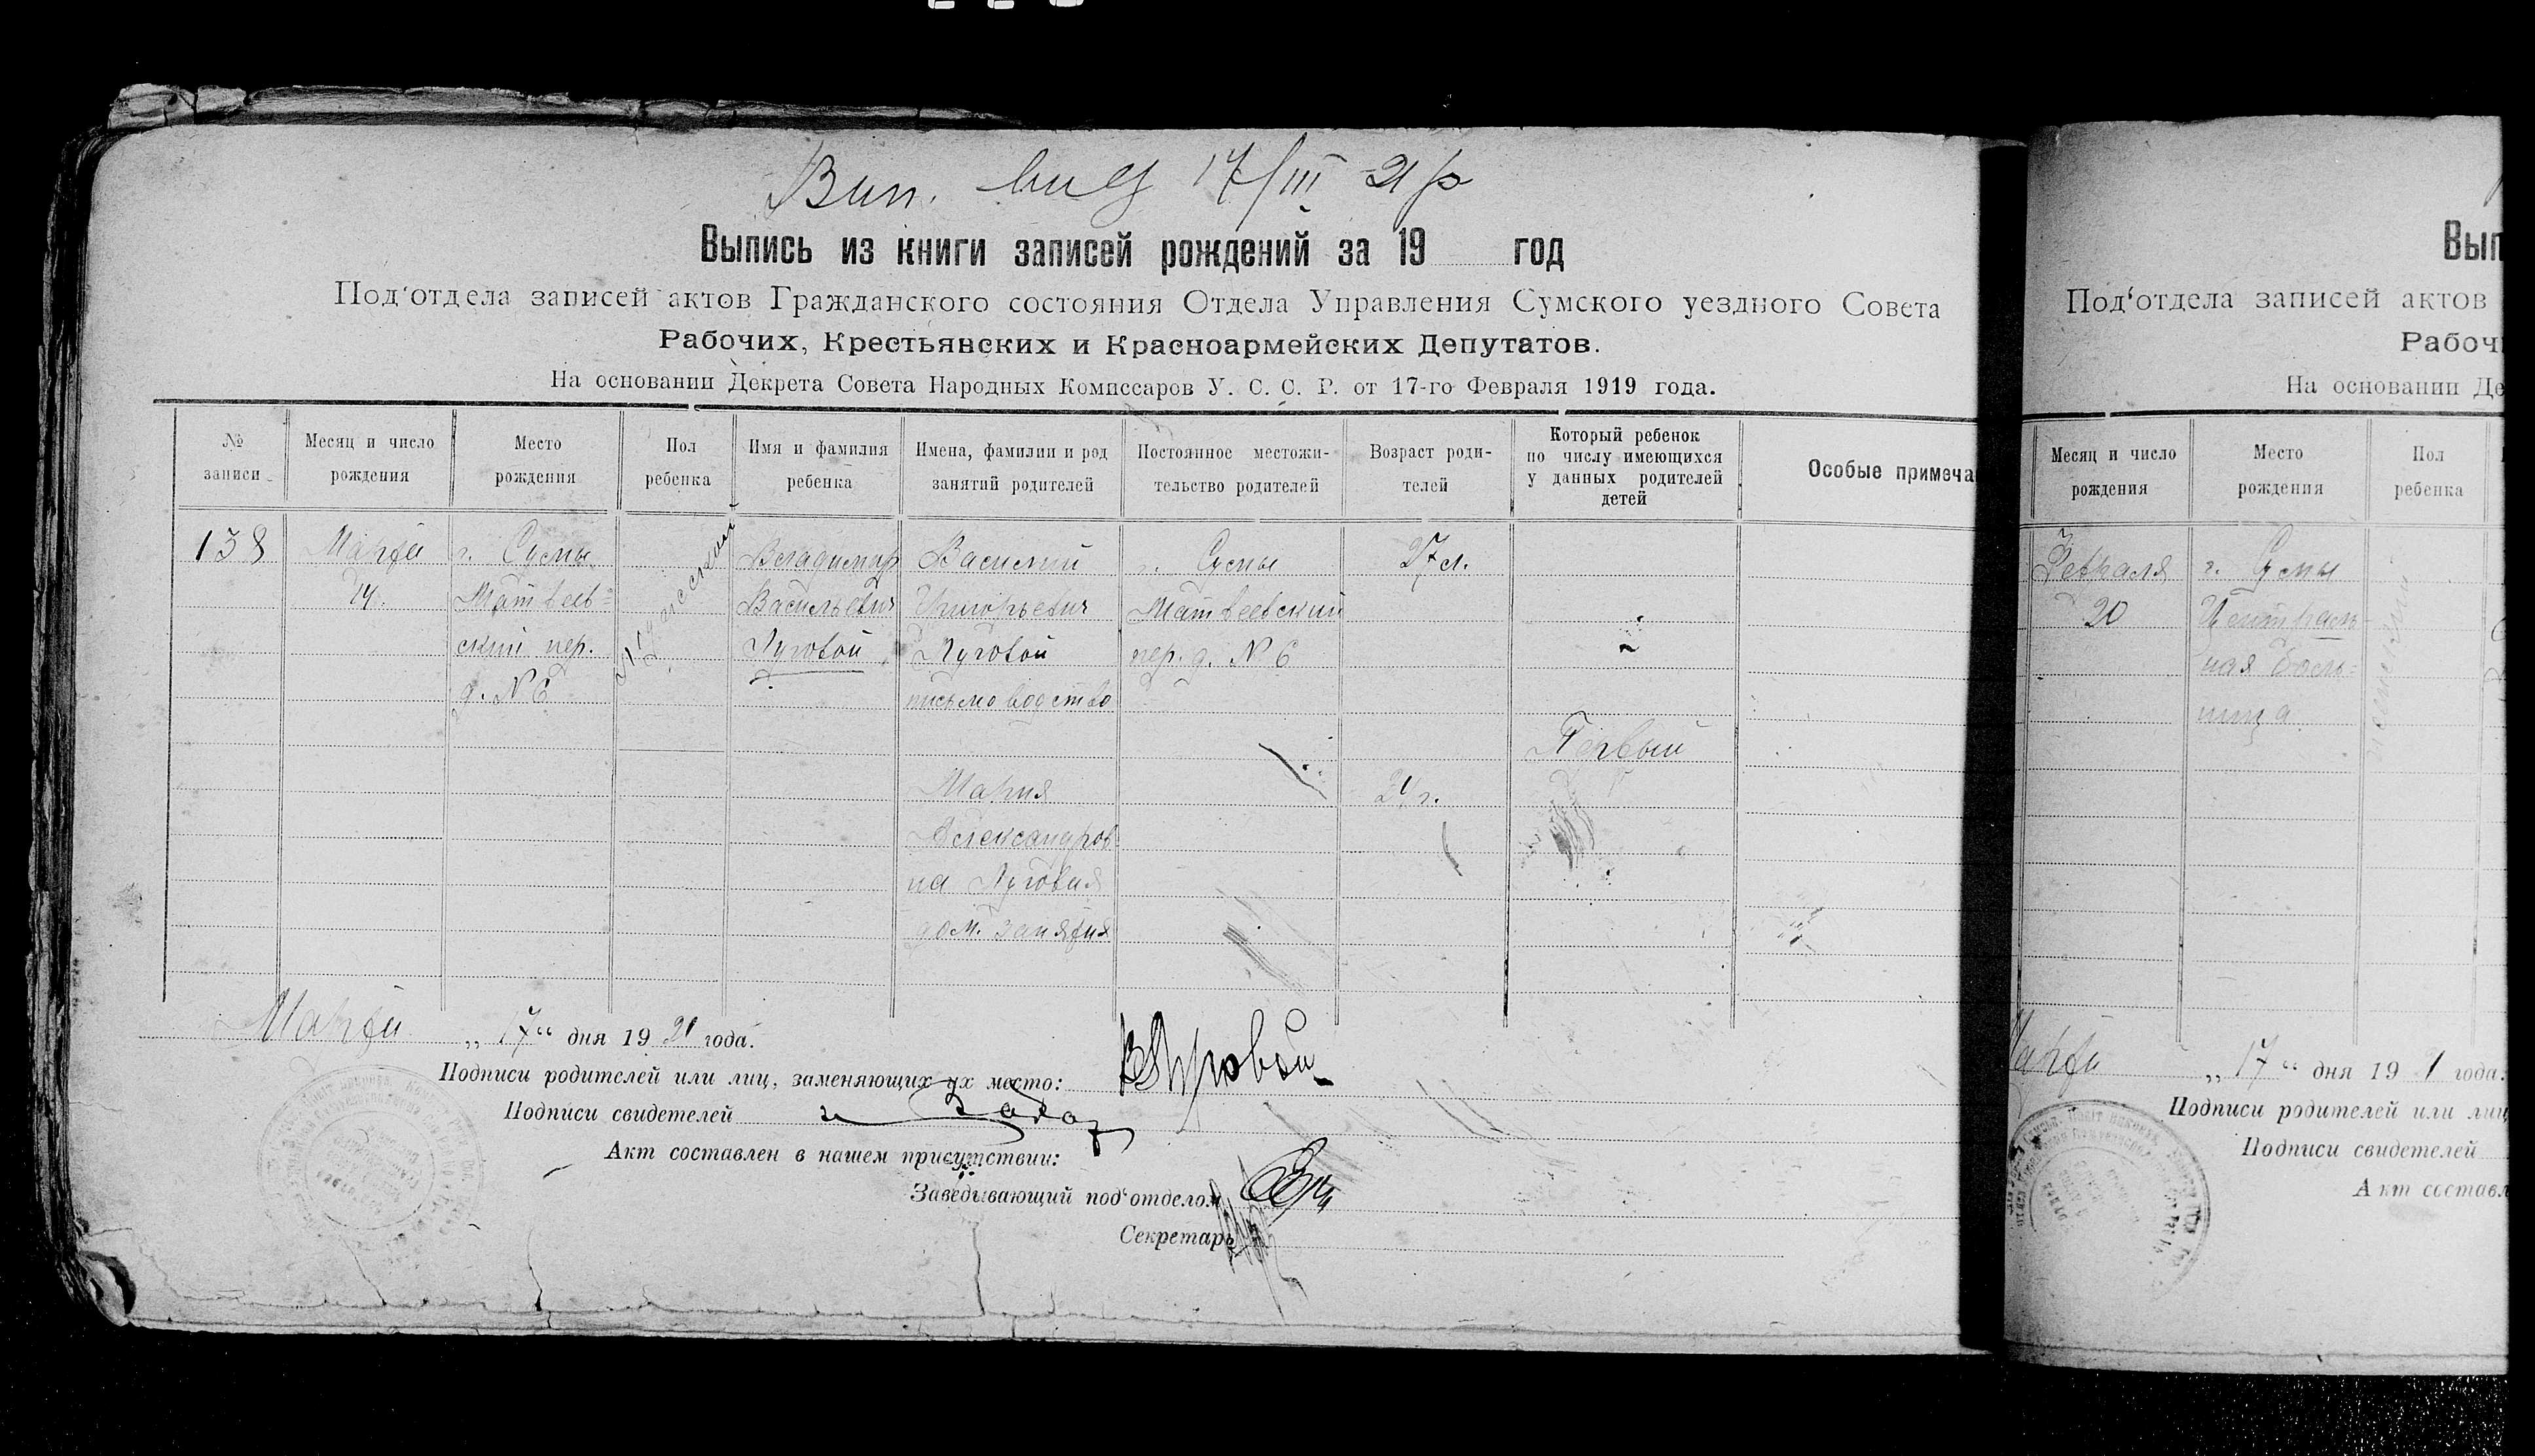 Вип. вид 17/III 21 р
Выпись из книги записей рождений за 19 год
Под‘отдела записей актов Гражданского состояния Отдела Управления Сумского уездного Совета
Рабочих, Крестьянских и Красноармейских Депутатов.
На основании Декрета Совета Народных Комиссаров У. С. С. Р. от 17-го Февраля 1919 года.
№ записи
Месяц и число рождения
Место рождения
Пол ребенка
Имя и фамилия ребенка
Имена, фамилии и род занятий родителей
Постоянное местожительство родителей
Возраст родителей
Который ребенок по числу имеющихся у данных родителей детей
Особые примеча
138
Марта
14.
г. Сумы
Матвеев=
ский пер.
д. № 6
Мужеский
Владимир
Васильевич
Луговой
Василий
Григорьевич
Луговой
письмоводство
г. Сумы
Матвеевский
пер. д. № 6
27 л.
Первый
Мария
Александров-
на Луговая
дом. занятия
21 г.
Марта „ 17 “ дня 19 21 года.
Подписи родителей или лиц, заменяющих их место: ВЛуговой
Подписи свидетелей
Акт составлен в нашем присутствии:
Заведывающий под‘отделом
Секретарь
Вып
Под‘отдела записей актов
Рабоч
На основании Де
Месяц и число рождения
Место рождения
Пол ребенка
Февраля
20
г. Сумы
Централь-
ная боль=
ница
женский
Марта „ 17 “ дня 19 1 года.
Подписи родителей или лиц
Подписи свидетелей
Акт составл